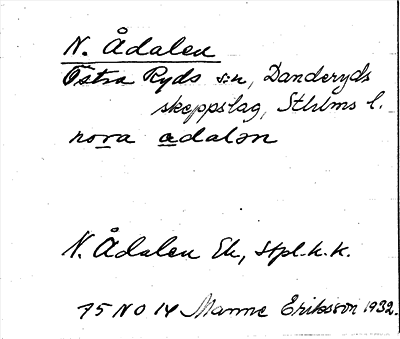 N. Ådalen
Östra Ryds s:n, Danderyds
skeppslag, Sthlms l.
nor̲a a̲dalən
N. Ådalen Ek, stpl.k.k.
75 NO 14 Manne Eriksson 1932.